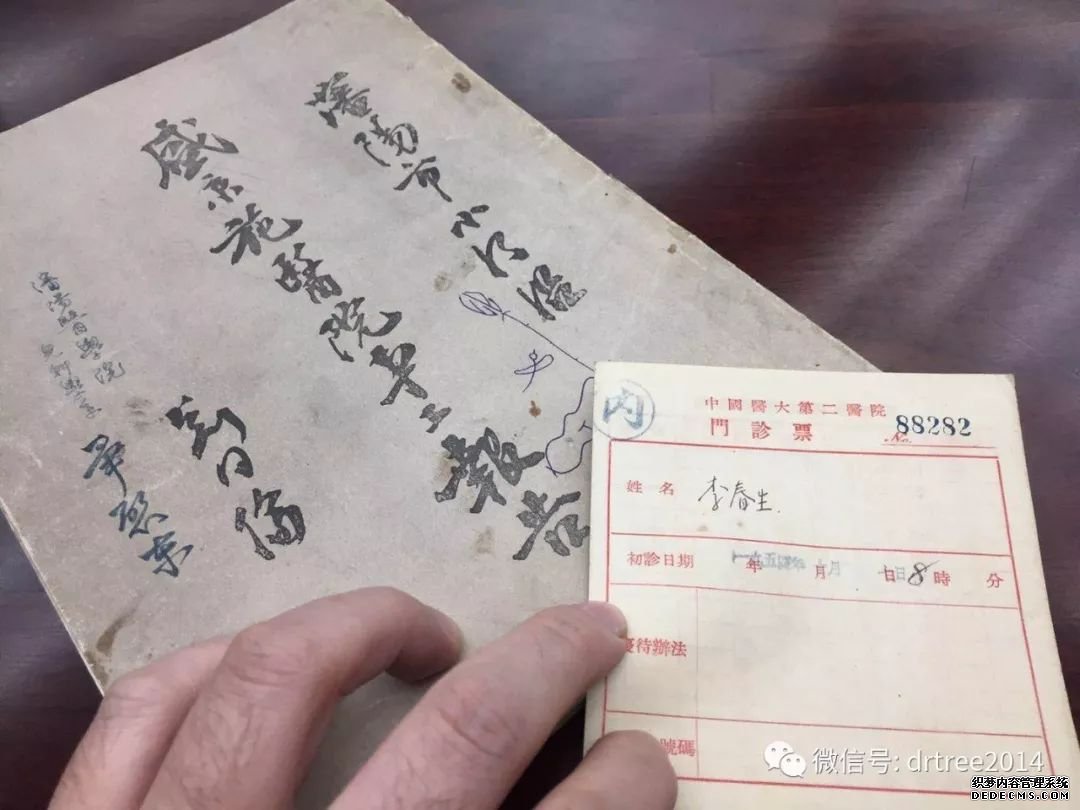 瀋陽市小河沿
盛京施醫院
報告
同倫
瀋陽醫學院
內
中國醫大第二醫院
門診票 No. 88282
姓名 李春生
初診日期 年 月 日 8 時 分
待辦法
號碼
微信号: drtree2014
织梦内容管理系统
DEDECMS.COM